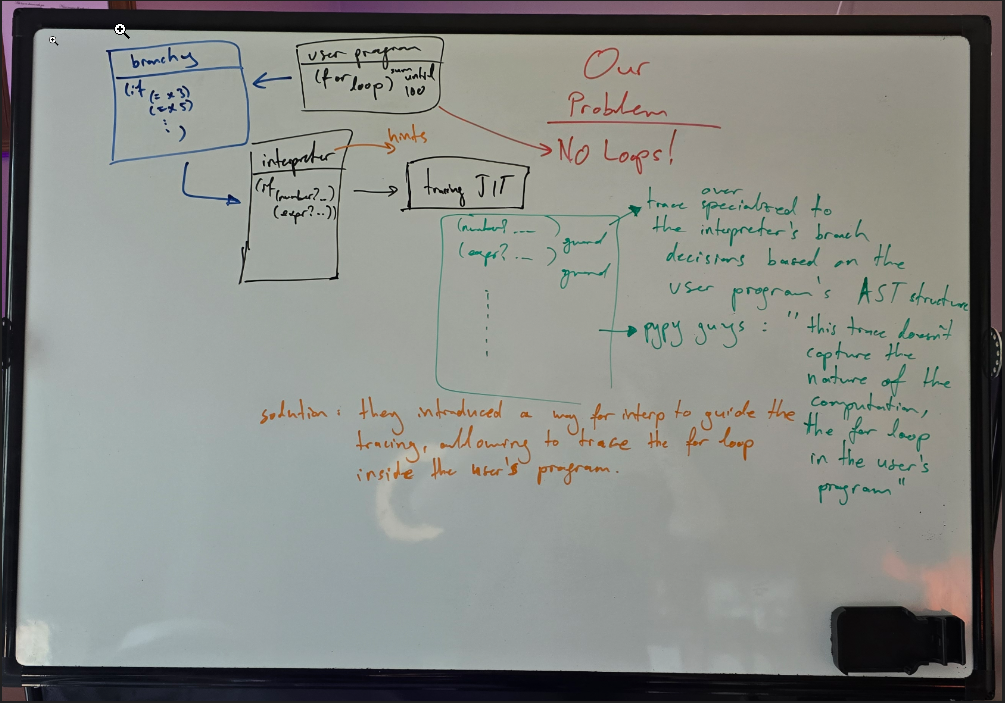 branchy
(if (= x 3)
(= x 5)
⋮ )
user program
(for loop) sum until 100
Our
Problem
No Loops!
hints
intepreter
(if (number? ..)
(expr? ..))
tracing JIT
(number? ... ) guard
(expr? ... ) guard
trace over specialized to
the intepreter's branch
decisions based on the
user program's AST structure
pypy guys : "this trace doesn't
capture the
nature of the
computation,
the for loop
in the user's
program"
solution: they introduced a way for interp to guide the
tracing, allowing to trace the for loop
inside the user's program.